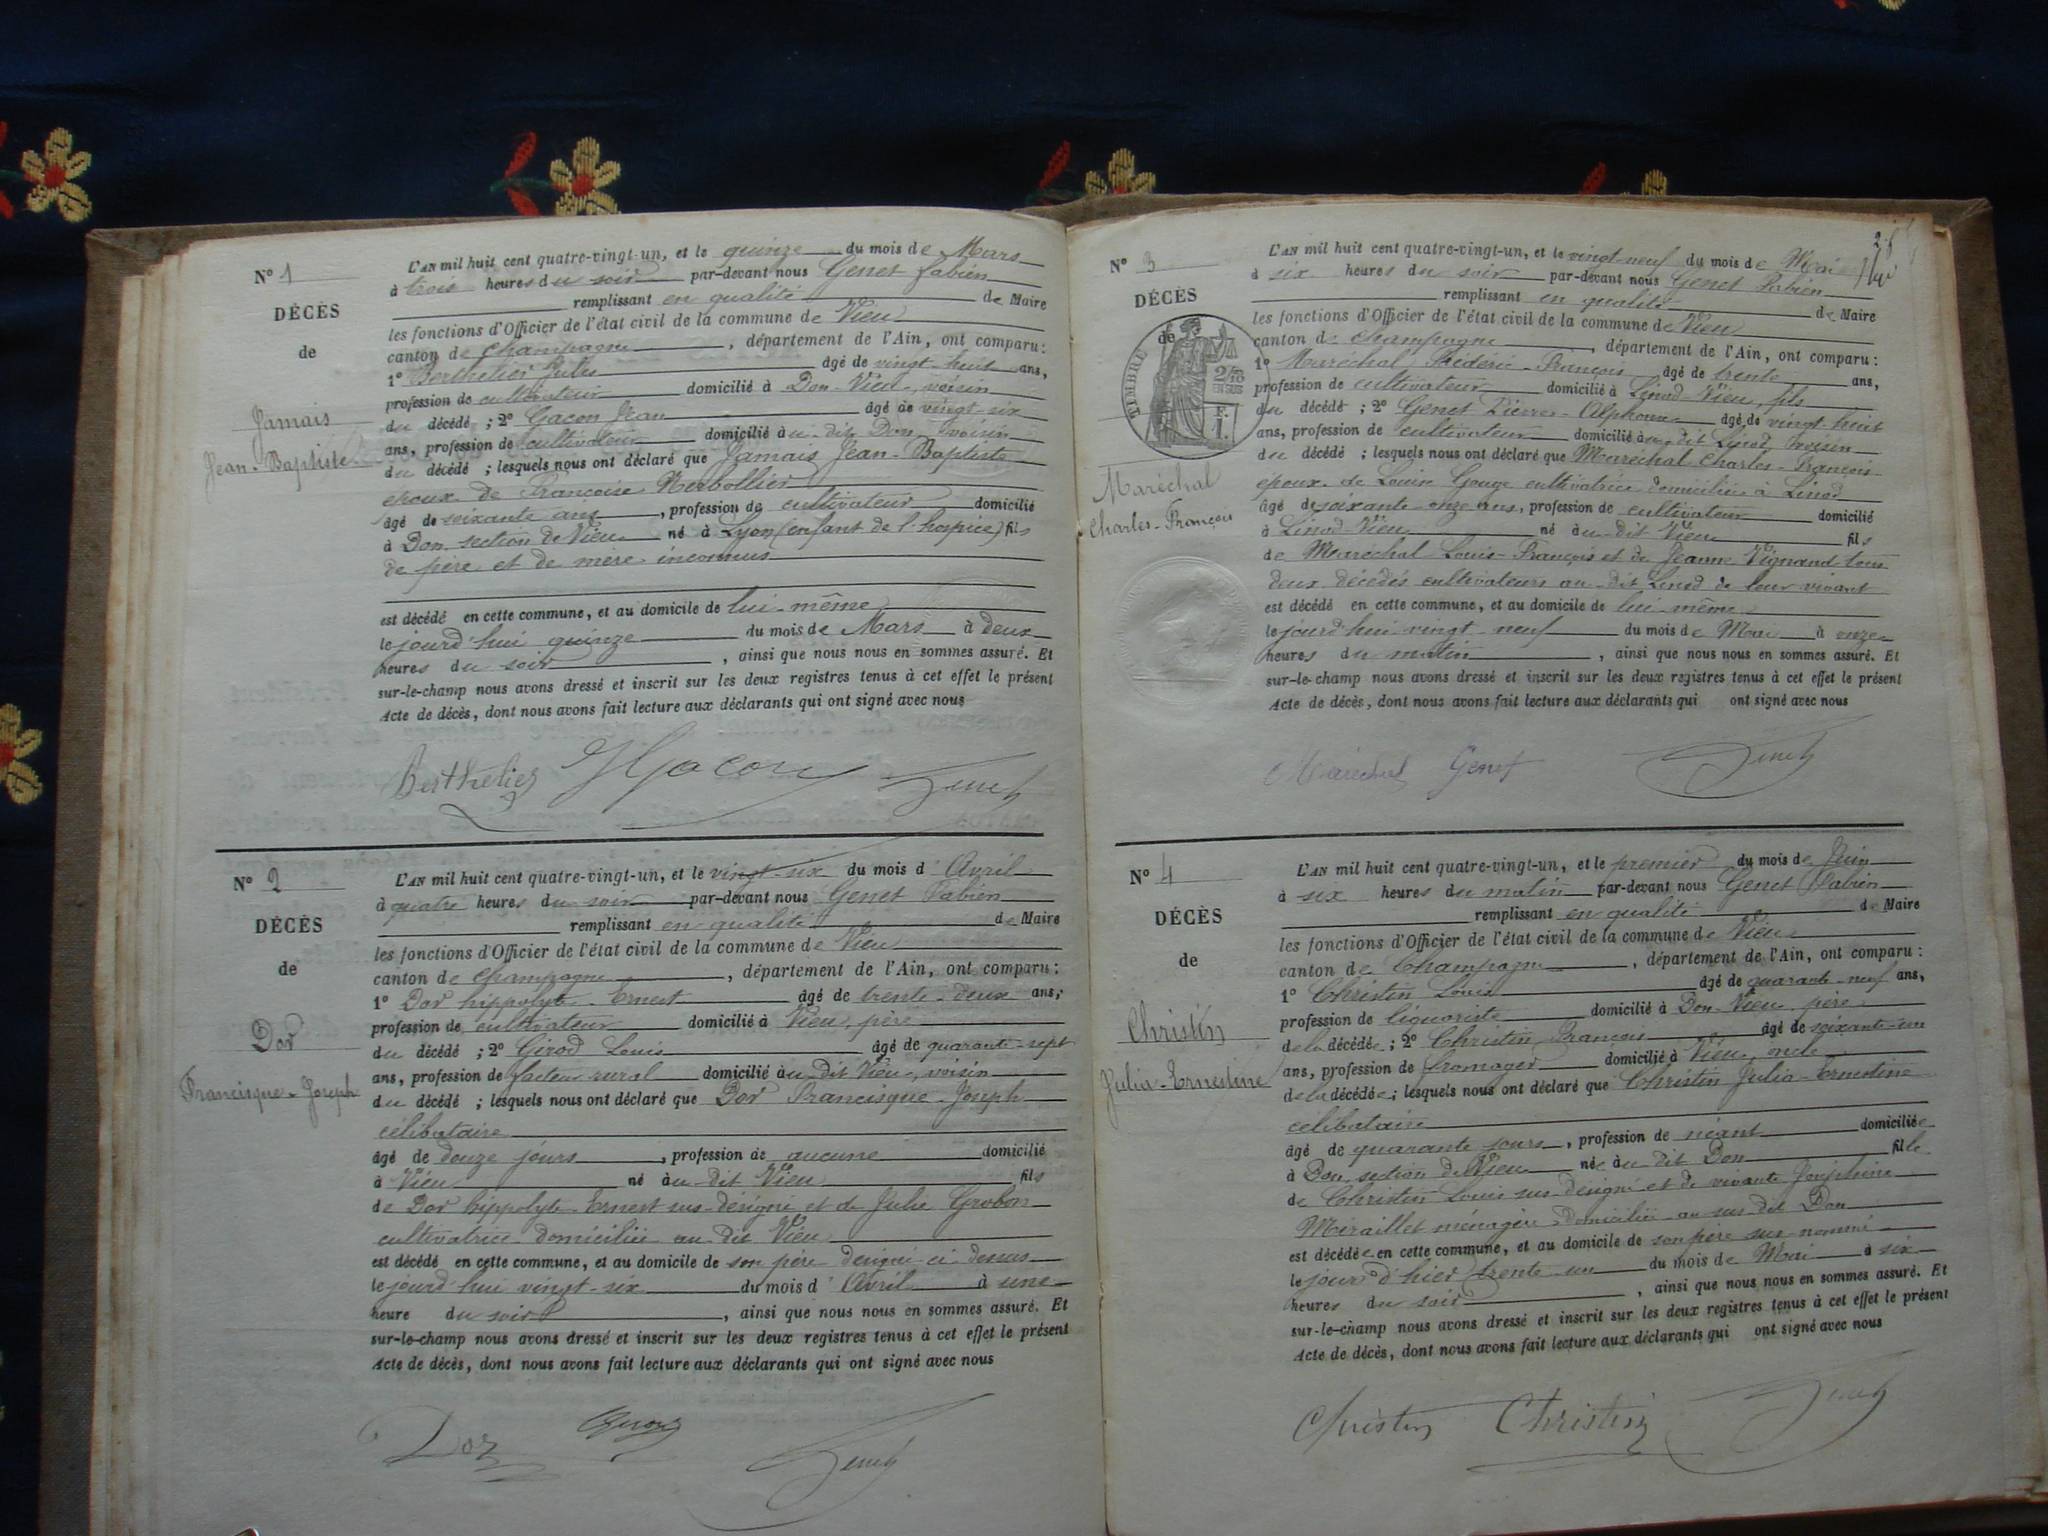 N° 1
DÉCÈS
de
Jamais
Jean-Baptiste
L'AN mil huit cent quatre-vingt-un, et le quinze du mois de Mars
à trois heures du soir par-devant nous Genet Fabien
remplissant en qualité de Maire
les fonctions d'Officier de l'état civil de la commune de Vieu
canton de Champagne, département de l'Ain, ont comparu :
1° Berthelier Jules âgé de vingt-huit ans,
profession de cultivateur domicilié à Don-Vieu, voisin
du décédé ; 2° Gacon Jean âgé de vingt-six
ans, profession de cultivateur domicilié au-dit Don, voisin
du décédé ; lesquels nous ont déclaré que Jamais Jean-Baptiste
époux de Françoise Merbollier
âgé de soixante ans, profession de cultivateur domicilié
à Don section de Vieu né à Lyon (enfant de l'hospice) fils
de père et de mère inconnus
est décédé en cette commune, et au domicile de lui-même
le jourd'hui quinze du mois de Mars à deux
heures du soir, ainsi que nous nous en sommes assuré. Et
sur-le-champ nous avons dressé et inscrit sur les deux registres tenus à cet effet le présent
Acte de décès, dont nous avons fait lecture aux déclarants qui ont signé avec nous
Berthelier JGacon Genet
N° 2
DÉCÈS
de
Dor
Francisque-Joseph
L'AN mil huit cent quatre-vingt-un, et le vingt-six du mois d'Avril
à quatre heures du soir par-devant nous Genet Fabien
remplissant en qualité de Maire
les fonctions d'Officier de l'état civil de la commune de Vieu
canton de Champagne, département de l'Ain, ont comparu :
1° Dor hippolyte-Ernest âgé de trente-deux ans,
profession de cultivateur domicilié à Vieu, père
du décédé ; 2° Girod Louis âgé de quarante-sept
ans, profession de facteur rural domicilié au-dit Vieu, voisin
du décédé ; lesquels nous ont déclaré que Dor Francisque-Joseph
célibataire
âgé de douze jours, profession de aucune domicilié
à Vieu né au-dit Vieu fils
de Dor hippolyte-Ernest sus-désigné et de Julie Grobon
cultivatrice domiciliée au-dit Vieu
est décédé en cette commune, et au domicile de son père désigné ci-dessus
le jourd'hui vingt-six du mois d'Avril à une
heure du soir, ainsi que nous nous en sommes assuré. Et
sur-le-champ nous avons dressé et inscrit sur les deux registres tenus à cet effet le présent
Acte de décès, dont nous avons fait lecture aux déclarants qui ont signé avec nous
Dor Genet
N° 3
DÉCÈS
de
TIMBRE
2/10
EN SUS
F.
1.
Maréchal
Charles-François
L'AN mil huit cent quatre-vingt-un, et le vingt-neuf du mois de Mai
à six heures du soir par-devant nous Genet Fabien
remplissant en qualité de Maire
les fonctions d'Officier de l'état civil de la commune de Vieu
canton de Champagne, département de l'Ain, ont comparu :
1° Maréchal Frédéric-François âgé de trente ans,
profession de cultivateur domicilié à Linod-Vieu, fils
du décédé ; 2° Genet Pierre-Alphonse âgé de vingt-huit
ans, profession de cultivateur domicilié au-dit Linod, voisin
du décédé ; lesquels nous ont déclaré que Maréchal Charles-François
époux de Louise Gouge cultivatrice domiciliée à Linod
âgé de soixante-onze ans, profession de cultivateur domicilié
à Linod Vieu né au-dit Vieu fils
de Maréchal Louis-François et de Jeanne Vignand tous
deux décédés cultivateurs au-dit Linod de leur vivant
est décédé en cette commune, et au domicile de lui-même
le jourd'hui vingt-neuf du mois de Mai à onze
heures du matin, ainsi que nous nous en sommes assuré. Et
sur-le-champ nous avons dressé et inscrit sur les deux registres tenus à cet effet le présent
Acte de décès, dont nous avons fait lecture aux déclarants qui ont signé avec nous
Maréchal Genet Genet
N° 4
DÉCÈS
de
Christin
Julia-Ernestine
L'AN mil huit cent quatre-vingt-un, et le premier du mois de Juin
à six heures du matin par-devant nous Genet Fabien
remplissant en qualité de Maire
les fonctions d'Officier de l'état civil de la commune de Vieu
canton de Champagne, département de l'Ain, ont comparu :
1° Christin Louis âgé de quarante-neuf ans,
profession de liquoriste domicilié à Don-Vieu, père
de la décédée ; 2° Christin François âgé de soixante-un
ans, profession de fromager domicilié à Vieu, oncle
de la décédée ; lesquels nous ont déclaré que Christin Julia-Ernestine
célibataire
âgé de quarante jours, profession de néant domiciliée
à Don section de Vieu née au dit Don fille
de Christin Louis sus-désigné et de vivante Joséphine
Miraillet ménagère domiciliée au sus-dit Don
est décédée en cette commune, et au domicile de son père sus-nommé
le jour d'hier trente-un du mois de Mai à six
heures du soir, ainsi que nous nous en sommes assuré. Et
sur-le-champ nous avons dressé et inscrit sur les deux registres tenus à cet effet le présent
Acte de décès, dont nous avons fait lecture aux déclarants qui ont signé avec nous
Christin Christin Genet